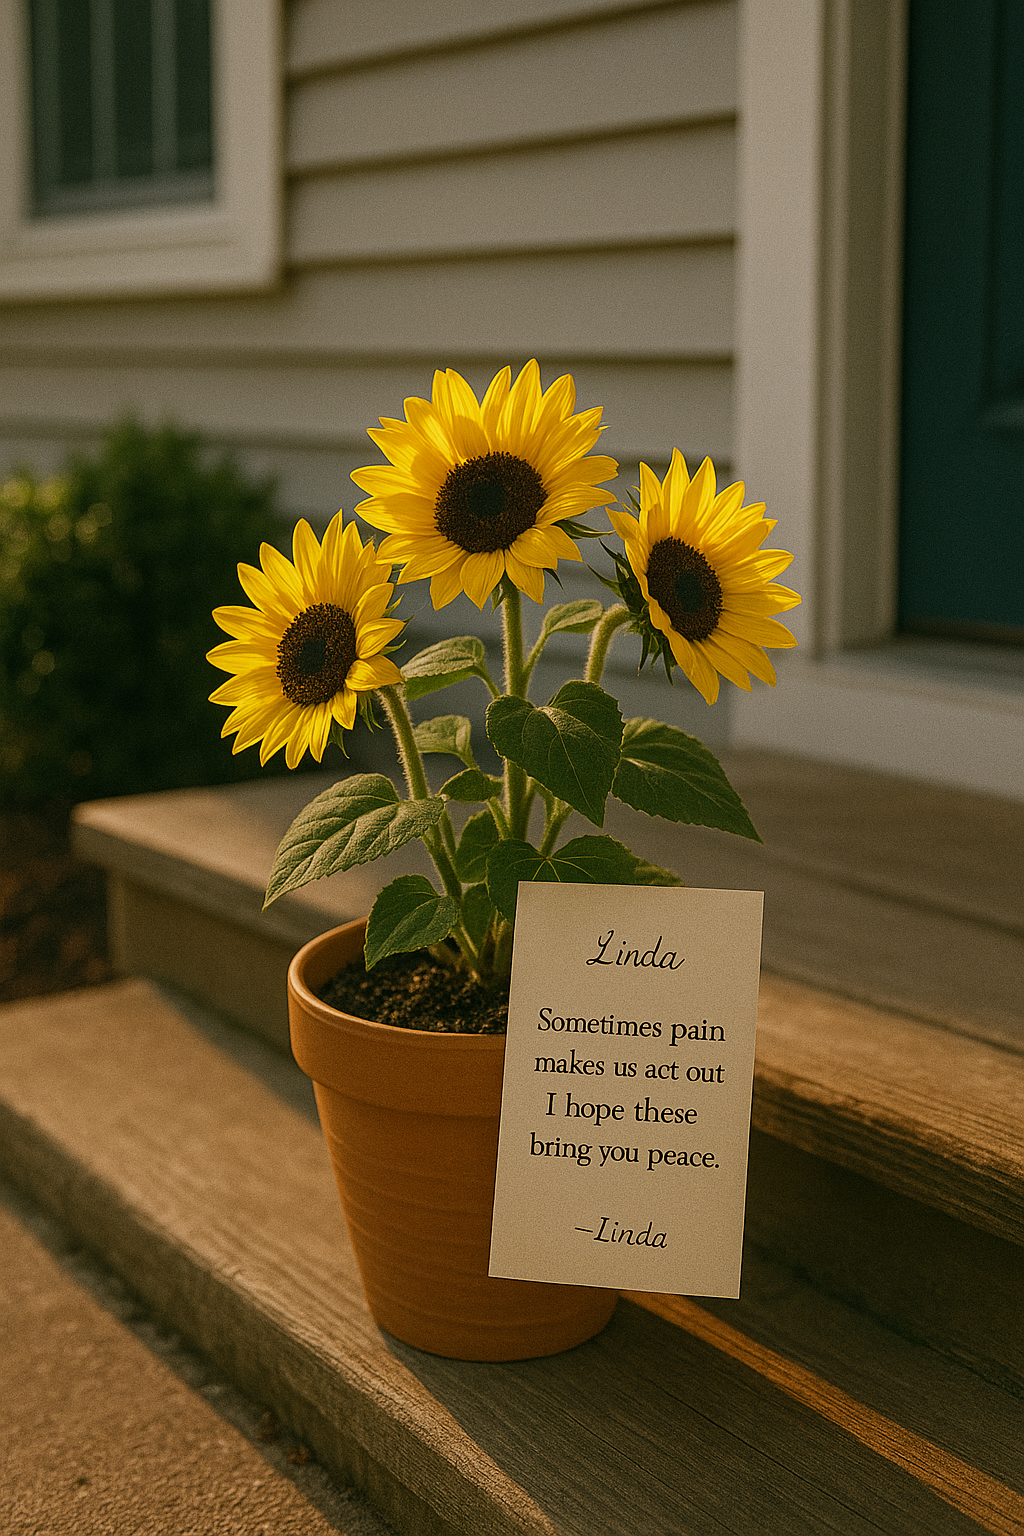 Linda
Sometimes pain
makes us act out
I hope these
bring you peace.
–Linda